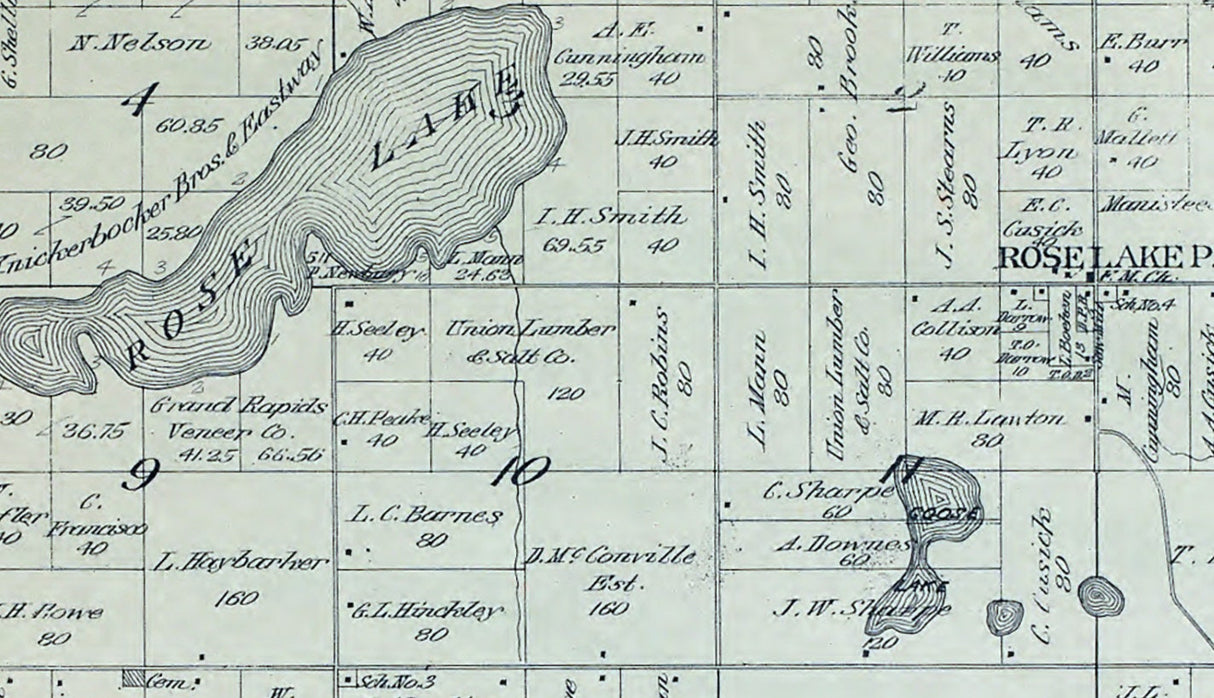 N. Nelson
38.05
4
60.85
80
Knickerbocker Bros. & Eastway
39.50
25.80
2
4
3
A. E.
Cunningham
29.55
40
3
J.H. Smith
40
4
I. H. Smith
69.55
40
L. Mann
24.62
ROSE LAKE
80
Geo. Brook
80
T.
Williams
40
40
E. Burr
40
12
I. H. Smith
80
J. S. Stearns
80
T. R.
Lyon
40
C.
Mallett
40
E. C.
Cusick
Manistee
ROSE LAKE P
F. M. Ch.
Sch. No. 4
H. Seeley
40
Union Lumber
& Salt Co.
120
C.H. Peake
40
H. Seeley
40
J. C. Robins
80
L. Mann
80
Union Lumber
& Salt Co.
80
A. A.
Collison
40
L.
Darrow
9
T. O.
Darrow
10
M. R. Lawton
80
M.
Cunningham
80
A. A. Cusick
30
36.75
3
Grand Rapids
Veneer Co.
41.25
66.56
9
10
11
fler
40
C.
Francisco
40
L. Haybarker
160
H. Rowe
80
L. C. Barnes
80
G. L. Hinckley
80
D. Mc Conville
Est.
160
C. Sharpe
60
A. Downes
60
J. W. Sharpe
120
GOOSE
LAKE
C. Cusick
80
T.
Cem.
W.
Sch. No. 3
J. L.